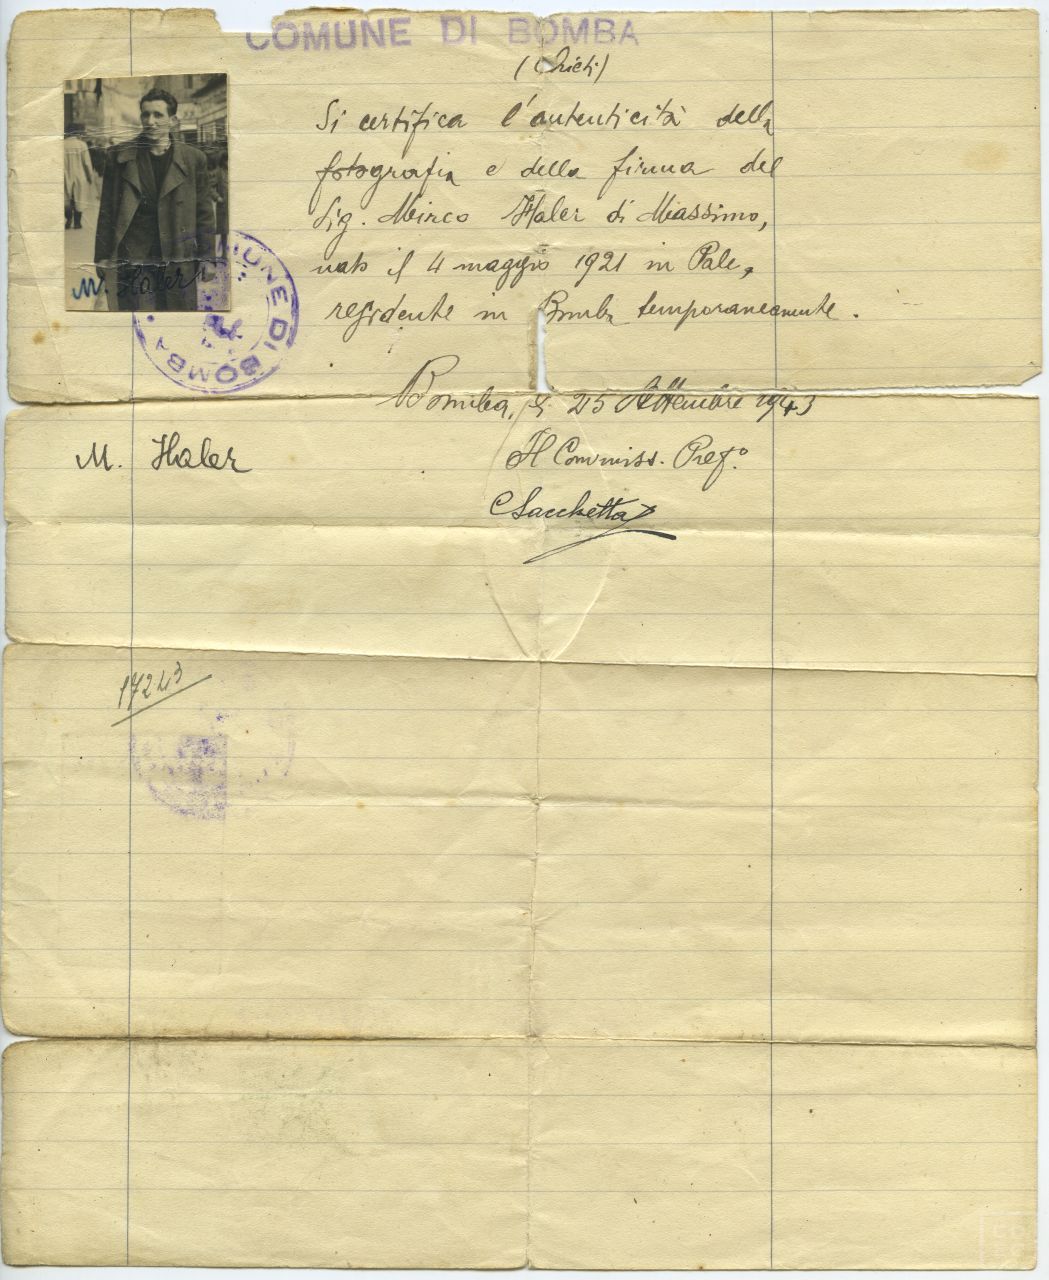 COMUNE DI BOMBA
(Chieti)
Si certifica l'autenticità della
fotografia e della firma del
Sig. Mirco Haler di Massimo,
nato il 4 maggio 1921 in Pale,
residente in Bomba temporaneamente.
M. Haler
COMUNE DI BOMBA
Bomba, li 25 Settembre 1943
M. Haler
Il Commiss. Pref.º
Sacchetta
17243